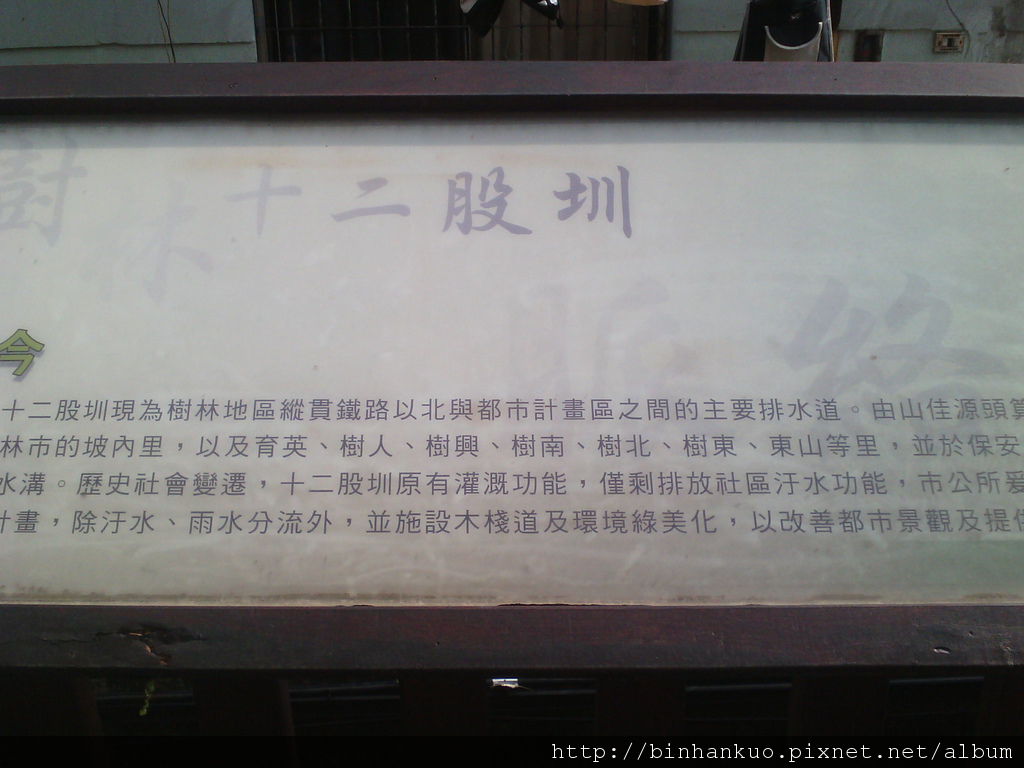 樹林十二股圳
脈絡
今
十二股圳現為樹林地區縱貫鐵路以北與都市計畫區之間的主要排水道。由山佳源頭算
林市的坡內里，以及育英、樹人、樹興、樹南、樹北、樹東、東山等里，並於保安
水溝。歷史社會變遷，十二股圳原有灌溉功能，僅剩排放社區汙水功能，市公所爰
計畫，除汙水、雨水分流外，並施設木棧道及環境綠美化，以改善都市景觀及提供
http://binhankuo.pixnet.net/album